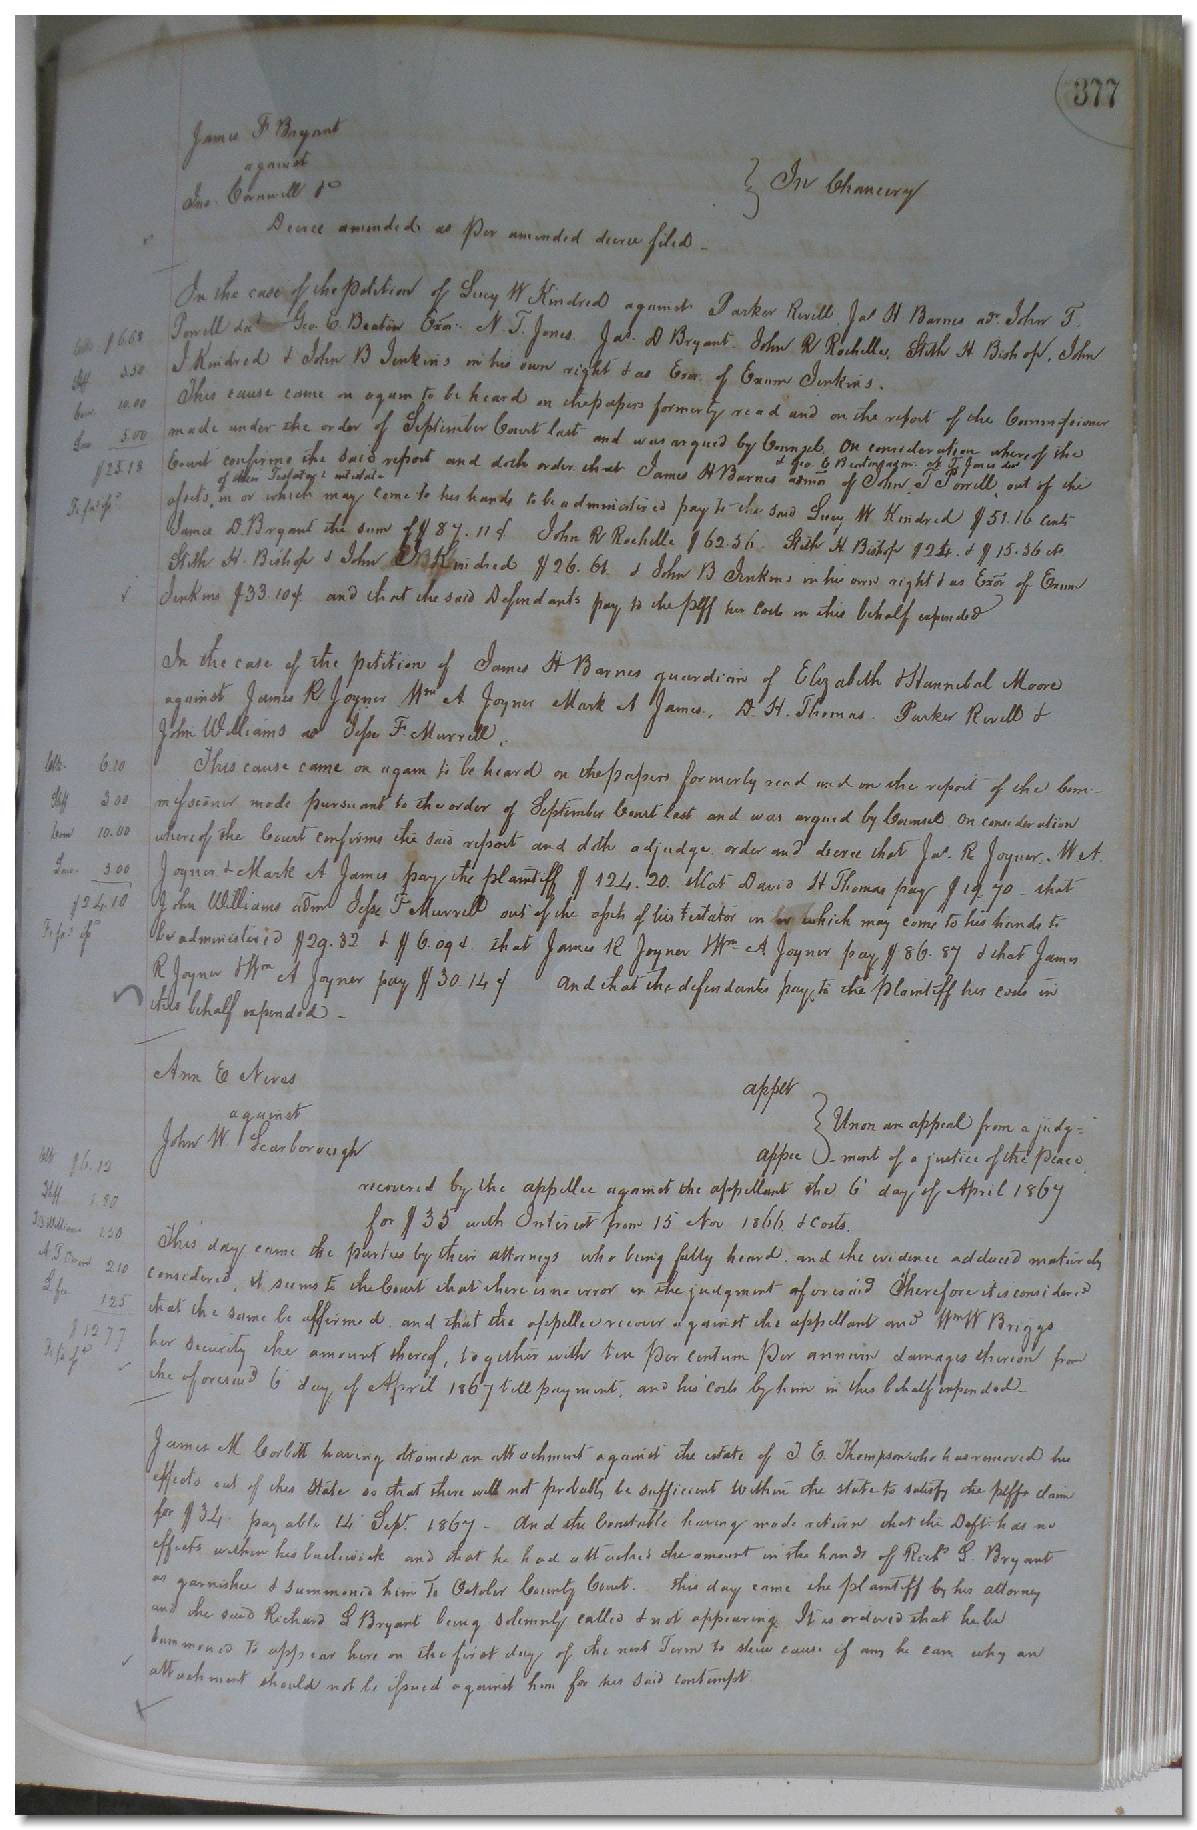 377
James F Bryant
against
Jno. Cornwell
} In Chancery
Decree amended as per amended decree filed -
In the case of the petition of Lucy W Kindred against Parker Revill Jas H Barnes adr. John T.
Geo. C. Beaton Exor. N. T. Jones. Jas. D Bryant. John R Rochelle, Stith H Bishop, John
I Kindred & John B Jenkins in his own right & as Exor. of Exum Jenkins.
This cause came on again to be heard on the papers formerly read and on the report of the Commissioner
made under the order of September Court last and was argued by Counsel. On consideration whereof the
Court confirms the said report and doth order that James H Barnes admr of John T out of the
& Geo C
of their Testator & intestate
assets in or which may come to his hands to be administered pay to the said Lucy W Kindred $51.16 cents
James D. Bryant the sum of $87.11¢ John R Rochelle $62.56 Stith H Bishop $24. & $15.36 cts
Stith H. Bishop & John Kindred $26.61 & John B Jenkins in his own right & as Exor of Exum
Jenkins $33.10¢ and that the said Defendants pay to the plff her costs in this behalf expended
$6.68
3.50
10.00
5.00
In the case of the petition of James H Barnes guardian of Elizabeth & Hannibal Moore
against James R Joyner Wm A Joyner Mark A James, D. H. Thomas. Parker Revill &
John Williams Jesse F Murrell.
This cause came on again to be heard on the papers formerly read and on the report of the Com-
missioner made pursuant to the order of September Court last and was argued by Counsel On consideration
whereof the Court confirms the said report and doth adjudge order and decree that Jas. R Joyner, W A.
Joyner & Mark A James pay the plaintiff $124.20. that David H Thomas pay $19.70 - that
John Williams adm Jesse F Murrell out of the assets of his testator in or which may come to his hands to
be administered $29.32 & $6.09¢. that James R Joyner & Wm A Joyner pay $86.87 & that James
R Joyner & Wm A Joyner pay $30.14¢ And that the defendants pay to the plaintiff her costs in
this behalf expended -
6.10
3.00
10.00
5.00
$24.10
Ann E Neves
against
John W Scarborough
appet
appee
} Upon an appeal from a judg-
ment of a justice of the Peace
recovered by the appellee against the appellant the 6 day of April 1867
for $35 with Interest from 15 Nov 1866 & costs.
This day came the parties by their attorneys who being fully heard, and the evidence adduced maturely
considered, it seems to the Court that there is no error in the judgment aforesaid Therefore it is considered
that the same be affirmed and that the appellee recover against the appellant and Wm W Briggs
her security the amount thereof, together with ten per centum per annum damages thereon from
the aforesaid 6 day of April 1867 till payment, and his costs by him in this behalf expended -
$6.12
1.80
1.50
2.10
1.25
$12.77
James M Corbitt having obtained an attachment against the estate of J E. Thompson who has removed his
effects out of this State so that there will not probably be sufficient within the state to satisfy the plffs claim
for $34. payable 14 Sept. 1867 - And the Constable having made return that the Deft. has no
effects within his bailiwick and that he had attached the amount in the hands of Richd G. Bryant
as garnishee & summoned him to October County Court. This day came the plaintiff by his attorney
and the said Richard G Bryant being solemnly called & not appearing It is ordered that he be
summoned to appear here on the first day of the next Term to shew cause if any he can why an
attachment should not be issued against him for his said contempt